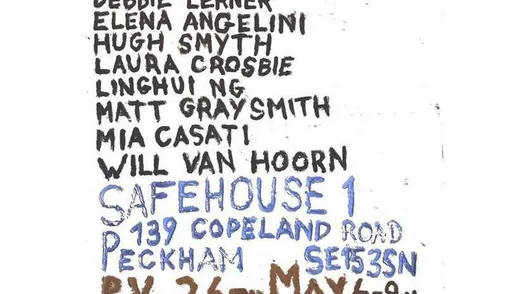 DEBBIE LERNER
ELENA ANGELINI
HUGH SMYTH
LAURA CROSBIE
LINGHUI NG
MATT GRAYSMITH
MIA CASATI
WILL VAN HOORN
SAFEHOUSE 1
139 COPELAND ROAD
PECKHAM SE153SN
P.V. 26TH MAY 6-9